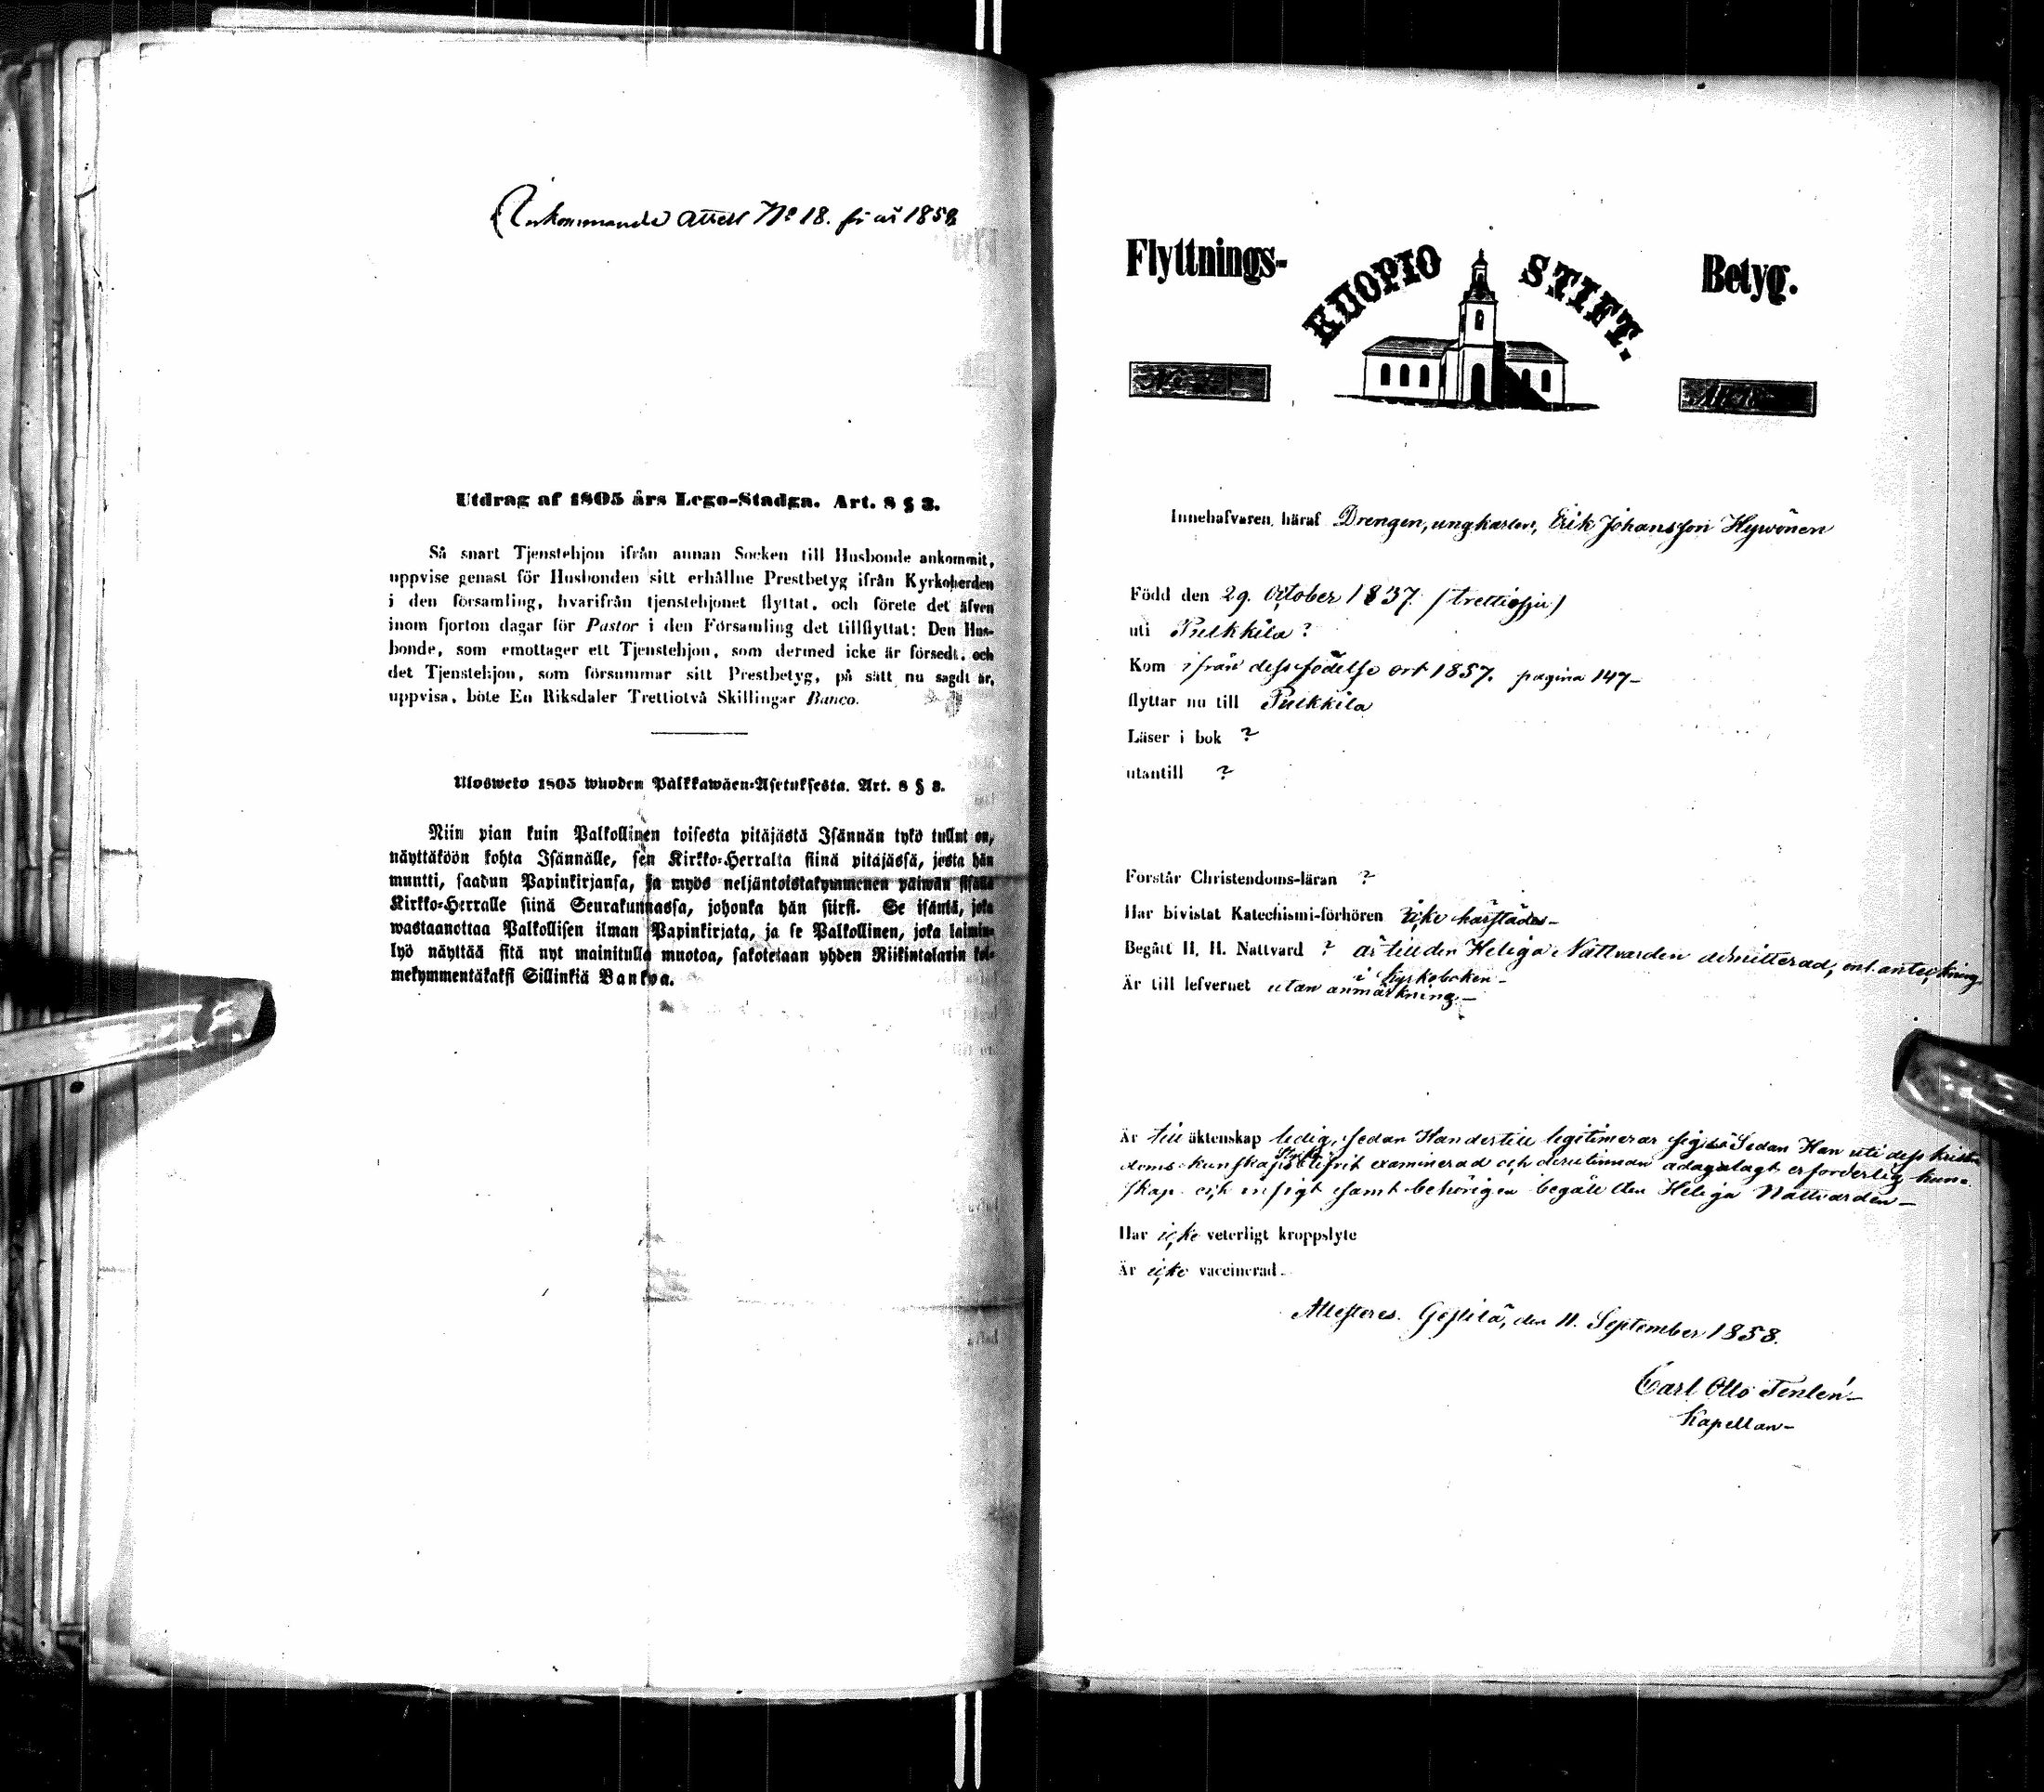 Inkommande Attest No 18. för år 1858
Utdrag af 1805 års Lego-Stadga. Art. 8 § 3.
Så snart Tjenstehjon ifrån annan Socken till Husbonde ankommit,
uppvise genast för Husbonden sitt erhållne Prestbetyg ifrån Kyrkoherden
i den församling, hvarifrån tjenstehjonet flyttat, och förete det äfven
inom fjorton dagar för Pastor i den Församling det tillflyttat: Den Hus-
bonde, som emottager ett Tjenstehjon, som dermed icke är försedt, och
det Tjenstehjon, som försummar sitt Prestbetyg, på sätt nu sagdt är,
uppvisa, böte En Riksdaler Trettiotvå Skillingar Banco.
Ulosweto 1805 wuoden Palkkawäen-Asetuksesta. Art. 8 § 3.
Niin pian kuin Palkollinen toisesta pitäjästä Isännän tykö tullut on,
näyttäköön kohta Isännälle, sen Kirkko-Herralta siinä pitäjässä, josta hän
muutti, saadun Papinkirjansa, ja myös neljäntoistakymmenen päiwän sisällä
Kirkko-Herralle siinä Seurakunnassa, johonka hän siirsi. Se isäntä, joka
wastaanottaa Palkollisen ilman Papinkirjata, ja se Palkollinen, joka laimin-
lyö näyttää sitä nyt mainitulla muotoa, sakotetaan yhden Riikintalarin kol-
mekymmentäkaksi Sillinkiä Bankoa.
Flyttnings- KUOPIO STIFT. Betyg.
Innehafvaren häraf Drengen, ungkarlen, Erik Johansson Hyvönen
Född den 29. October 1837. (trettiosju)
uti Pulkkila?
Kom ifrån dess födelse ort 1857. pagina 147-
flyttar nu till Pulkkila
Läser i bok ?
utantill ?
Förstår Christendoms-läran ?
Har bivistat Katechismi-förhören icke härstädes-
Begått H. H. Nattvard ? är till den Heliga Nattvarden admitterad, enl. anteckning
i Kyrkoboken-
Är till lefvernet utan anmärkning-
Är till äktenskap ledig, sedan Han dertill legitimerar sig Sedan Han uti dess kristen
doms-kunskap blifvit examinerad och derutinnan ådagalagt erforderlig kun-
skap och insigt samt behörigen begått den Heliga Nattvarden-
Har icke veterligt kroppslyte
Är icke vaccinerad-
Attesteres. Gestilä, den 11. September 1858.
Carl Otto Tenlén-
Kapellan-